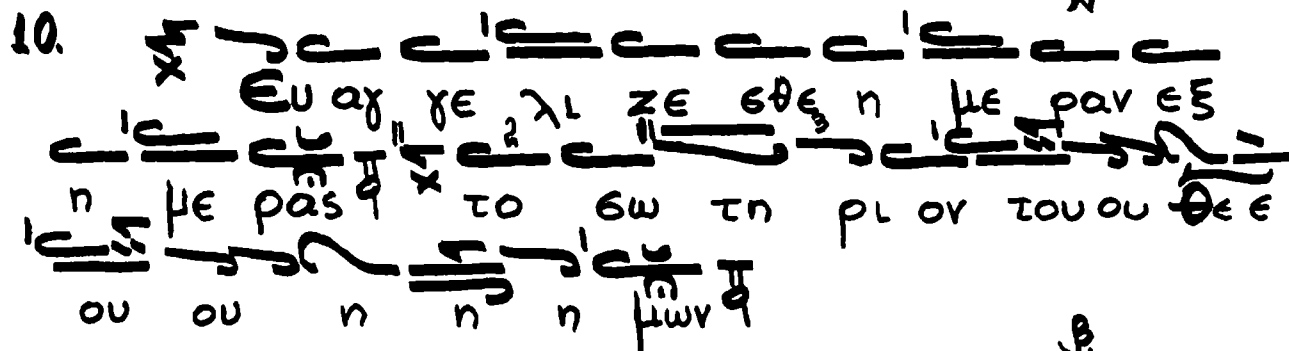 10.
Ευ αγ γε λι ζε σθε η με ραν εξ
η με ρας το σω τη ρι ον του ου Θε ε
ου ου η η η μων
β